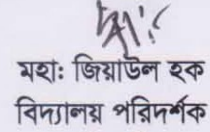 মহাঃ জিয়াউল হক
বিদ্যালয় পরিদর্শক